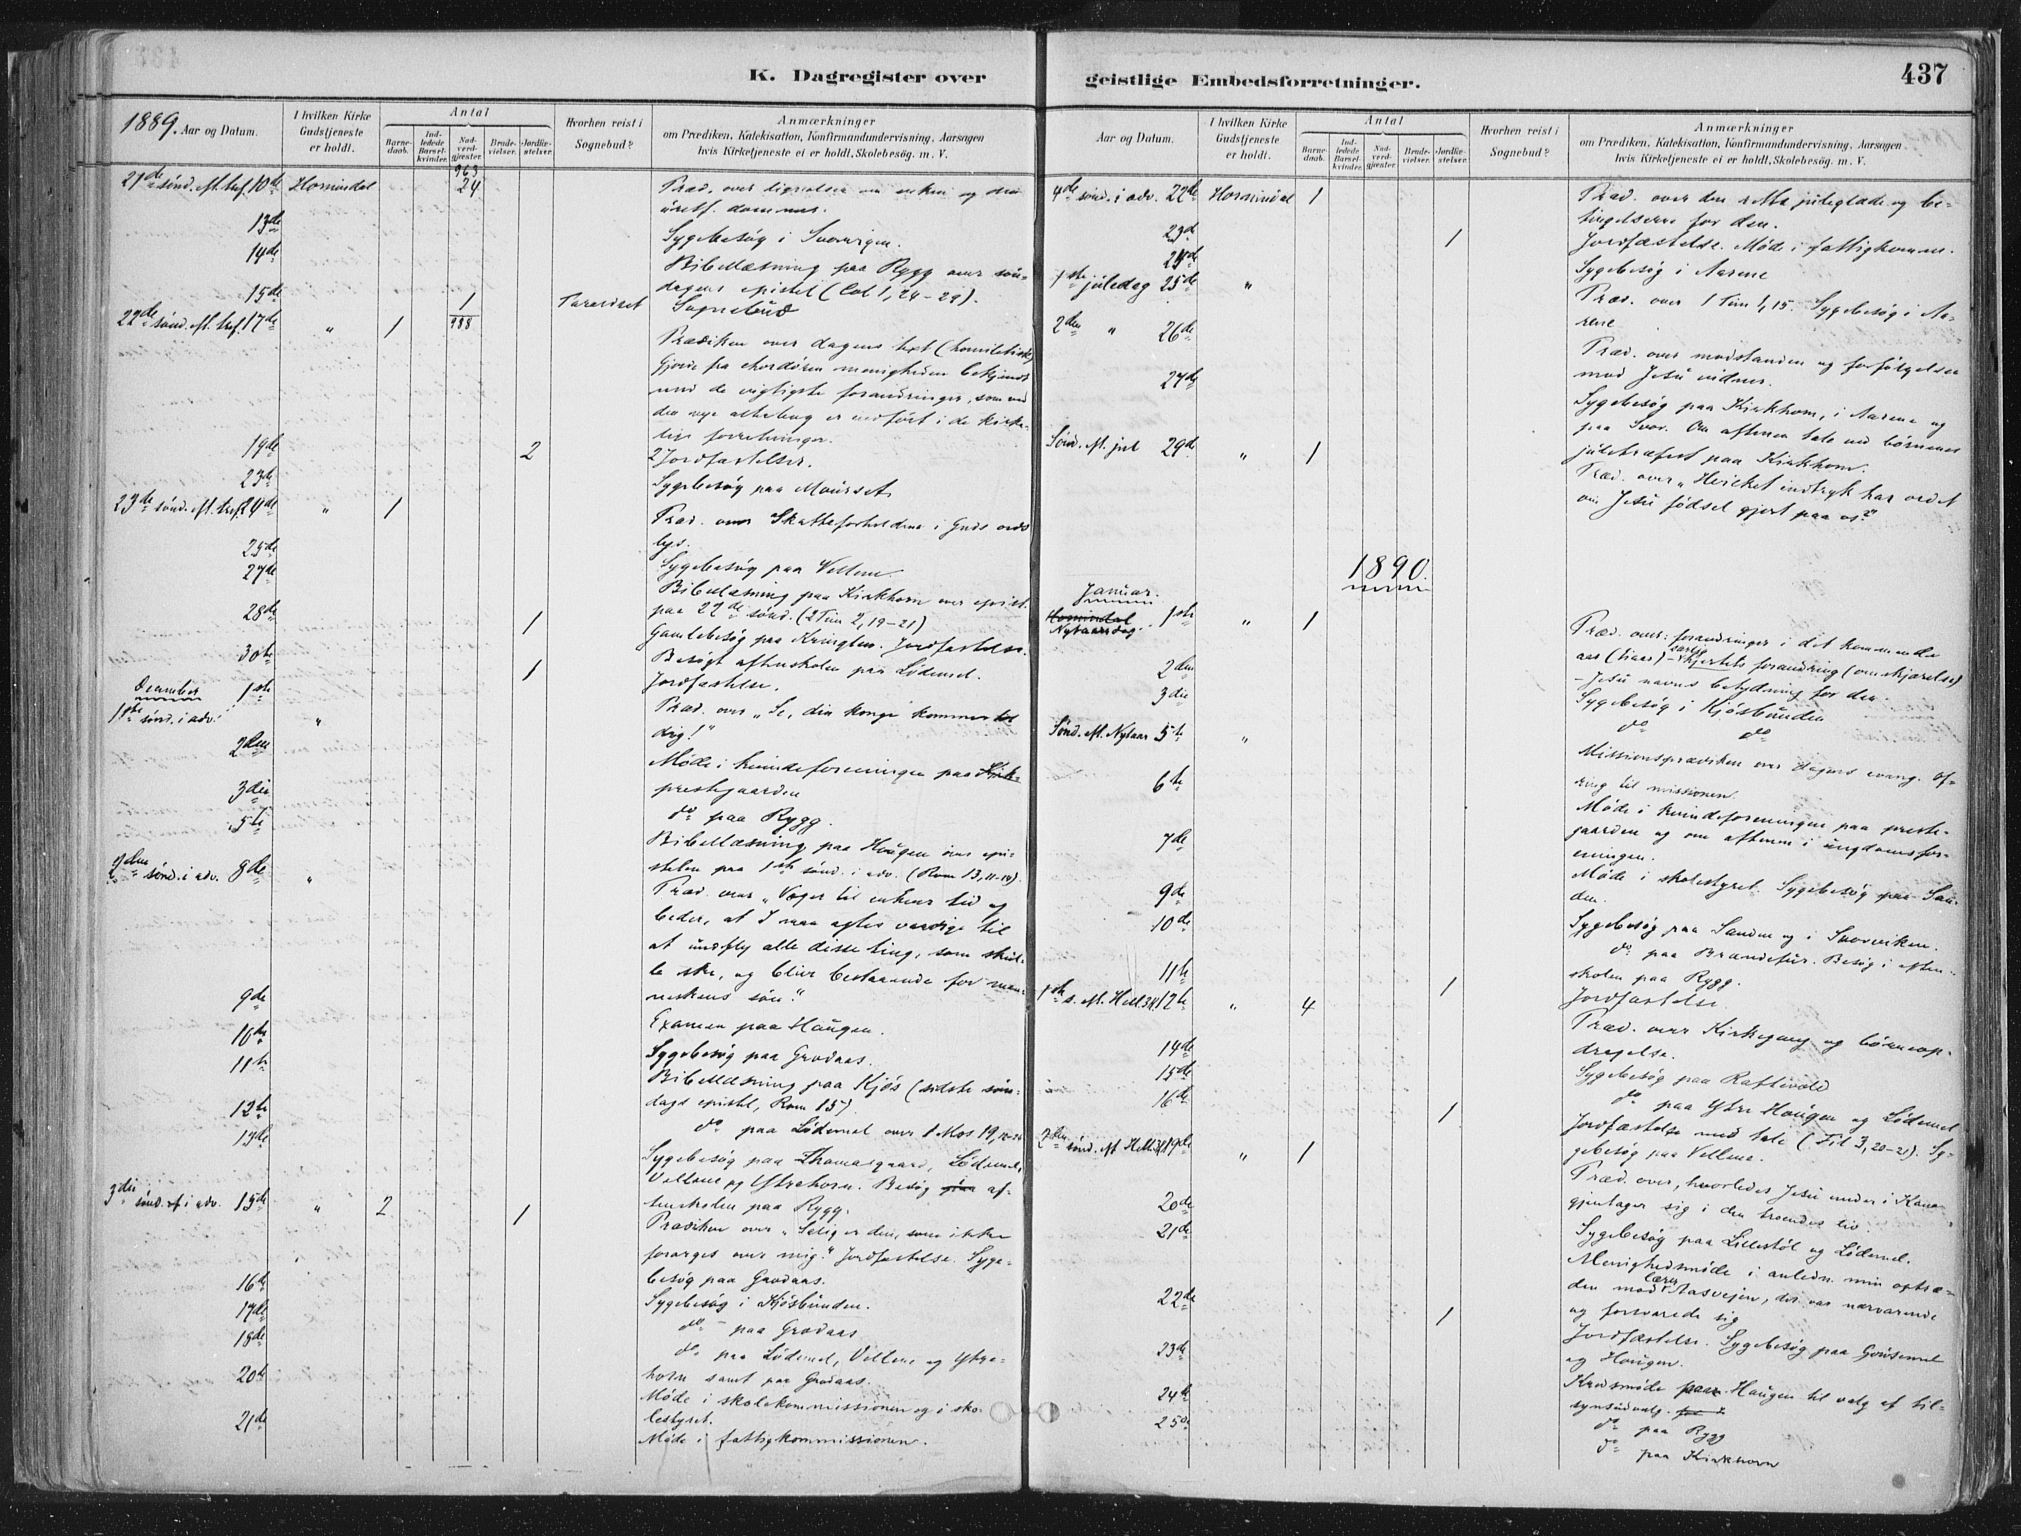 K. Dagregister over
geistlige Embedsforretninger.
437
1889. Aar og Datum.
I hvilken Kirke Gudstjeneste er holdt.
Antal
Barnedaab.
Indledede Barselkvinder.
Nadverdgjester
Brudevielser.
Jordfæstelser.
Hvorhen reist i Sognebud?
Anmærkninger
om Prædiken, Katekisation, Konfirmandundervisning, Aarsagen
hvis Kirketjeneste ei er holdt, Skolebesøg. m. V.
963
21de sønd. eft. tref. 10de Hornindal 24 Præd. over lignelsen om enken og den
uretf. dommer.
13de Sygebesøg i Svorvigen.
14de Bibellæsning paa Rygg over søn-
dagens epistel (Col 1, 24-29).
15de 1 Sognebud
988
22de sønd. eft. tref. 17de " 1 Prædiken over dagens text (homiletisk)
Gjorde fra chordøren menigheden bekjendt
med de vigtigste forandringer, som ved
den nye alterbog er indført i de kirke-
lige forretninger.
19de 2 2 Jordfæstelser.
23de Sygebesøg paa Maurset.
23de sønd. eft. tref. 24de " 1 Præd. over Skatteforholdene i Guds ords
lys.
25de Sygebesøg paa Vellene.
27de Bibellæsning paa Kirkhorn over epist.
paa 22de sønd. (2 Tim 2, 19-21)
28de 1 Gamlebesøg paa Kringlen. Jordfæstelse.
30te Besøgt aftenskolen paa Lødemel.
1 Jordfæstelse.
December 1ste
1ste sønd. i adv. " Præd. over "Se, din konge kommer til
dig!"
2den Møde i kvindeforeningen paa
prestegaarden
3die do paa Rygg.
5te Bibellæsning paa Haugen over epi-
stelen paa 1ste sønd. i adv. (Rom 13, 11-14).
2den sønd. i adv. 8de " Præd. over "Vaager til enhver tid og
beder, at I maa agtes værdige til
at undfly alle disse ting, som skul-
le ske, og blive bestaaende for men-
neskens søn."
9de Examen paa Haugen.
10de Sygebesøg paa Grodaas.
11te Bibellæsning paa Kjøs (sidste søn-
dags epistel, Rom 15)
12te do paa Lødemel over 1 Mos 19,
13de Sygebesøg paa Thomasgaard, Lødemel,
Vellene og Ytrehorn. Besøg paa af-
tenskolen paa Rygg.
3die sønd. i adv. 15de " 2 1 Prædiken over "Salig er den, som ikke
forarges over mig." Jordfæstelse. Syge-
besøg paa Grodaas.
16de Sygebesøg i Kjøsbunden.
17de do - paa Grodaas
18de do paa Lødemel, Vellene og Ytre-
horn samt paa Grodaas.
20de Møde i skolekommissionen og i sko-
lestyret.
21de Møde i fattigkommissionen.
Aar og Datum.
I hvilken Kirke Gudstjeneste er holdt.
Antal
Barnedaab.
Indledede Barselkvinder.
Nadverdgjester
Brudevielser.
Jordfæstelser.
Hvorhen reist i Sognebud?
Anmærkninger
om Prædiken, Katekisation, Konfirmandundervisning, Aarsagen
hvis Kirketjeneste ei er holdt, Skolebesøg. m. V.
4de sønd. i adv. 22de Hornindal 1 Præd. over den rette juleglæde og be-
tingelserne for den.
23de 1 Jordfæstelse. Møde i fattigkomm.
24de Sygebesøg i Aarene
1ste juledag 25de " Præd. over 1 Tim 1,15. Sygebesøg i Aa-
rene
2den " 26de Præd. over modstanden og forfølgelsen
mod Jesu vidner.
27de Sygebesøg paa Kirkhorn, i Aarene og
paa Svor. Om aftenen tale ved børnenes
juletræfest paa Kirkhorn.
Sønd. eft. jul 29de " 1 Præd. over "Hvilket indtryk har ordet
om Jesu fødsel gjort paa os?"
1890.
Januar.
Hornindal
Nytaarsdag 1ste " 1 Præd. over: forandringer i det kommende
aar (i aar) - særlig hjertets forandring (omskjærelse)
- Jesu navns betydning for den.
2den Sygebesøg i Kjøsbunden
3die do do
Sønd. eft. Nytaar 5te " Missionsprædiken over dagens evang. Of-
ring til missionen.
6te Møde i kvindeforeningen paa preste-
gaarden og om aftenen i ungdomsfor-
eningen.
7de Møde i skolestyret. Sygebesøg paa San-
den.
9de Sygebesøg paa Sanden og i Svorviken.
10de do paa Brandefur. Besøg i aften-
skolen paa Rygg.
11te 1 Jordfæstelse.
1ste s. eft. Hell 3K 12te " 4 Præd. over Kirkegang og børneop-
dragelse.
14de Sygebesøg paa Raftevold
15de do paa Ytre Haugen og Lødemel
16de 1 Jordfæstelse med tale (Fil 3, 20-21). Sy-
gebesøg paa Vellene.
2den sønd. eft Hell 3K 19de " 1 Præd. over, hvorledes Jesu under i Kana
gjentager sig i den troendes liv.
20de Sygebesøg paa Lillestøl og Lødemel.
21de Menighedsmøde i anledn. min optræ-
den mod lærer Aasvejen, der var nærværende
og forsvarede sig
22de 1 Jordfæstelse. Sygebesøg paa Gausemel
og Haugen.
23de Kredsmøde paa Haugen til valg af til-
synsudvalg.
24de do paa Rygg
25de do paa Kirkhorn